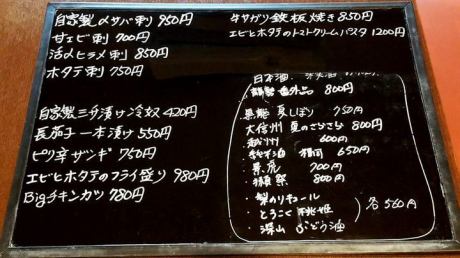 自家製〆サバ刺 950円
甘エビ刺 700円
活〆ヒラメ刺 850円
ホタテ刺 750円
自家製三升漬け冷奴 420円
長茄子一本漬け 550円
ピリ辛ザンギ 750円
エビとホタテのフライ盛り 980円
Bigチキンカツ 780円
牛サガリ鉄板焼き 850円
エビとホタテのトマトクリームパスタ 1200円
日本酒
番外品 800円
夏しぼり 750円
大信州 夏のさらさら 800円
600円
650円
700円
獺祭 800円
・梨のリキュール
・とろこく桃姫
・深山 ぶどう酒
各560円